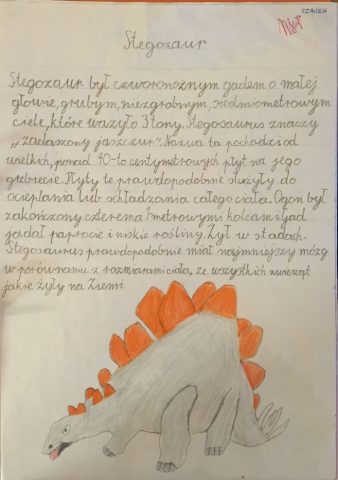 CZAREK
Stegozaur
Stegozaur był czworonożnym gadem o małej
głowie, grubym, niezgrabnym, siedmiometrowym
ciele, które ważyło 3 tony. Stegosaurus znaczy
„zadaszony jaszczur". Nazwa ta pochodzi od
wielkich, ponad 40-to centymetrowych płyt na jego
grzbiecie. Płyty te prawdopodobnie służyły do
ocieplania lub schładzania całego ciała. Ogon był
zakończony czterema 1 metrowymi kolcami. Gad
jadał paprocie i niskie rośliny. Żył w stadach.
Stegosaurus prawdopodobnie miał najmniejszy mózg
w porównaniu z rozmiarami ciała, ze wszystkich zwierząt
jakie żyły na Ziemi.